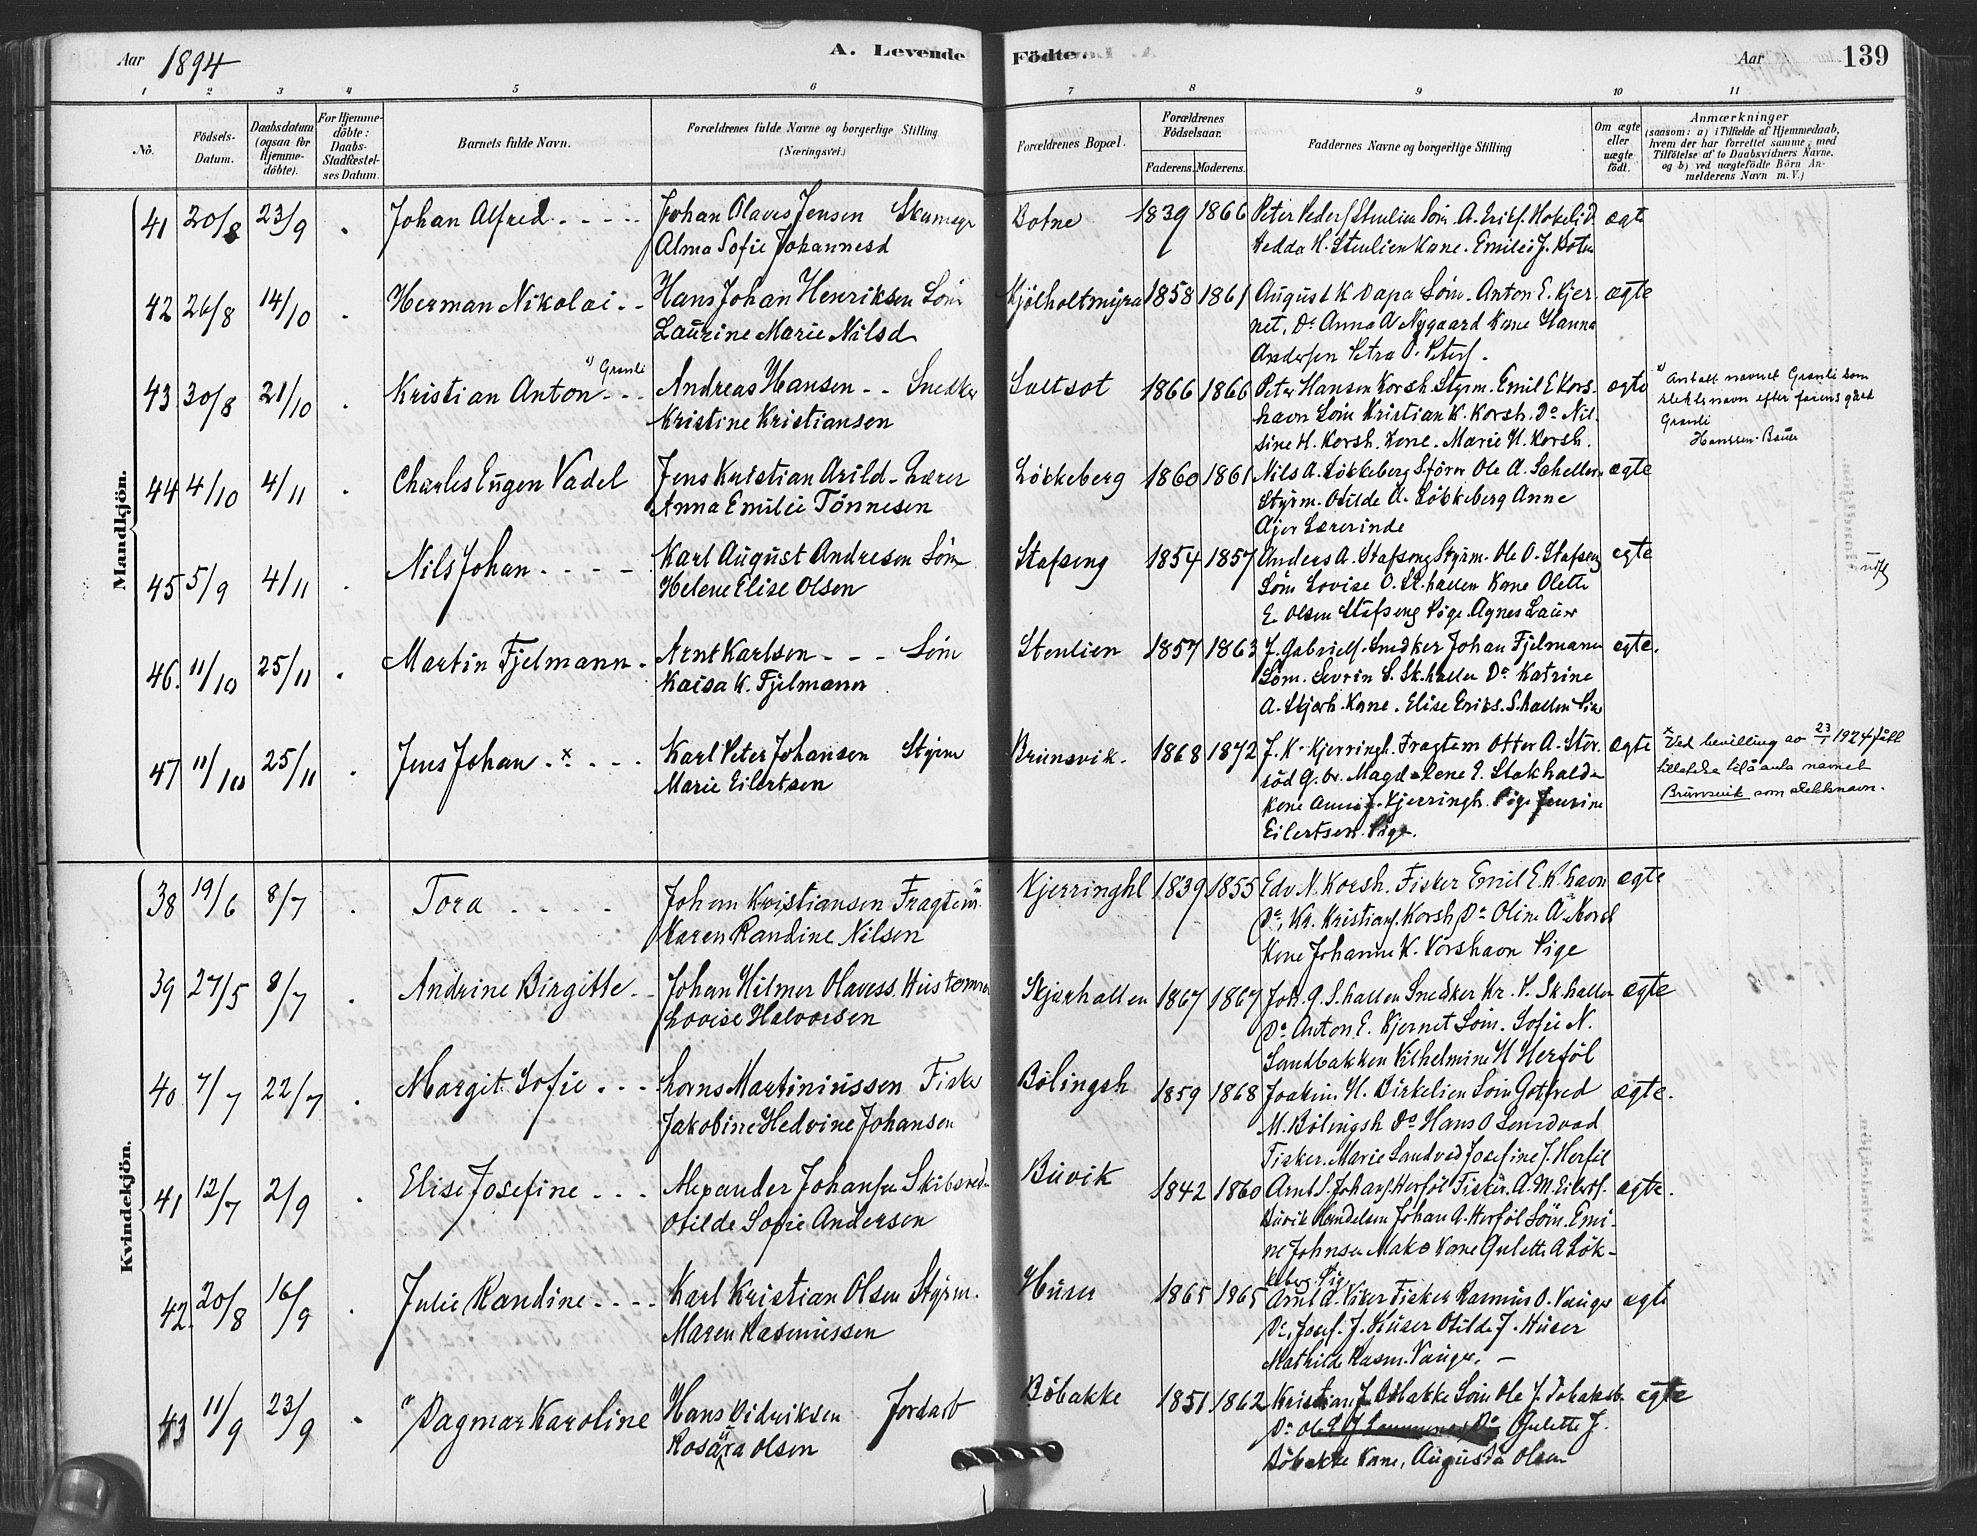 Aar 1894
A. Levende Födte.
Aar 139
1 2 3 4 5 6 7 8 9 10 11
No.
Födsels-Datum.
Daabsdatum (ogsaa for Hjemme-döbte).
For Hjemme-döbte: Daabs-Stadfæstel-ses Datum.
Barnets fulde Navn.
Forældrenes fulde Navne og borgerlige Stilling (Næringsvei.)
Forældrenes Bopæl.
Forældrenes Födselsaar.
Faderens. Moderens.
Faddernes Navne og borgerlige Stilling
Om ægte eller uægte födt.
Anmærkninger
(saasom: a) i Tilfælde af Hjemmedaab, hvem der har forrettet samme, med Tilföielse af to Daabsvidners Navne. og b) ved uægtefödte Börn An-melderens Navn m. V.)
Mandkjön.
41 20/8 23/9 Johan Alfred Johan Olaves Jensen Skomagr Botne 1839 1866 Peter Peders Stenlien Søm. A. Eriks. Hokelid ægt
Alma Sofie Johannesd Hedda H. Stenlien Kone. Emilie J. Botne
42 26/8 14/10 Herman Nikolai Hans Johan Henriksen Søm Kjølholtmyra 1858 1861 August K Papa Søm. Anton E. Kjer- ægte
Laurine Marie Nilsd net, Do Anna A Nygaard Kone Hanna
Andersen Petra O. Peters.
43 30/8 21/10 Kristian Anton 1) Granli Andreas Hansen Snedker Saltsot 1866 1866 Peter Hansen Korsh. Styrm. Emil E Kors- ægte
Kristine Kristiansen havn Søm Kristian K. Korsh. Do Nil-
sine H. Korsh. Kone. Marie H. Korsh.
1) Antatt navnet Granli som
slektsnavn efter farens gård
Granli
Hanssen-Bauer
44 4/10 4/11 Charles Eugen Vadel Jens Kristian Arild Lærer Løkkeberg 1860 1861 Nils A. Løkkeberg Ole A. ægte
Anna Emilie Tønnesen Styrm. Otilde A. Løkkeberg Anne
Ajer Lærerinde
45 5/9 4/11 Nils Johan Karl August Andresen Søm Stafseng 1854 1857 Anders A. Stafseng Styrm. Ole O. Stafseng ægte
Helene Elise Olsen Søm Lovise O. Sk.hallen Kone Olette
E. Olsen Stafseng Pige. Agnes Lauer
46. 11/10 25/11 Martin Fjelmann Arnt Karlsen Søm Stenlien 1857 1863 J. Gabriels. Snedker Johan Fjelmann ægte.
Kaisa K. Fjelmann Søm. Sevrin S. Sk.hallen Do Katrine
A. Skjærh. Kone. Elise Eriks. S.hallen Pige
47 11/10 25/11 Jens Johan x Karl Peter Johansen Styrm Brunsvik. 1868 1872 J. K. Kjerringh. Fragtem Otter A. Stor- ægte
Marie Eilertsen röd G.br. Magdalene E. Stokhalde
Kone Anna J. Kjerringh. Pige Jensine
Eilertsen. Pige.
x Ved bevilling av 23/1 1924 fått
tillatelse til å anta navnet
Brunsvik som slektsnavn.
Kvindekjön.
38 19/6 8/7 Tora Johan Kristiansen Fragtem Kjerringhl 1839 1855 Edv N. Korsh. Fisker Emil E. K.havn ægte
Karen Randine Nilsen Do, Kr. Kristians. Korsh Do Oline A. Nord
Kone Johanne K. Korshavn Pige
39 27/5 8/7 Andrine Birgitte Johan Hilmer Olavess. Hustømrer Skjærhallen 1867 1867 Joh. G. S.hallen Snedker Kr. P. Sk.hallen ægte
Lovise Halvorsen Do Anton E. Kjernet Søm. Sofie N.
Sandbakken Vilhelmine H Herføl
40 7/7 22/7 Margit Sofie Lorns Martiniussen Fisker Bølingsh 1859 1868 Joakim H. Birkelien Søm Gotfred ægte.
Jakobine Hedvine Johansen M. Bølingsh Do Hans O
Fisker. Marie Sandvad Josefine J. Herføl
41 12/7 2/9 Elise Josefine Alexander Johansen Skibsred Buvik 1842 1860 Arnt S. Johans. Herføl Fisker. A. M. ægte.
Otilde Sofie Andersen Buvik Handelsm Johan A. Herføl Søm. Emi-
ne Johnsen Makø Kone Gulette A Løk-
keberg. Pig
42. 20/8 16/9 Julie Randine Karl Kristian Olsen Styrm. Huser 1865 1865 Arnt A. Viker Fisker Rasmus O. Vauger ægte
Maren Rasmussen Do, Josef. J. Huser Otilde J. Huser
Mathilde Rasm. Vauger.
43 11/9 23/9 Dagmar Karoline Hans Didriksen Jordarb Bøbakke 1851 1862 Kristian J. Bøbakke Søm Ole J. Bøbakke ægte
Rosära Olsen Do Gulette J.
Bøbakke Kone, Augusta Olsen